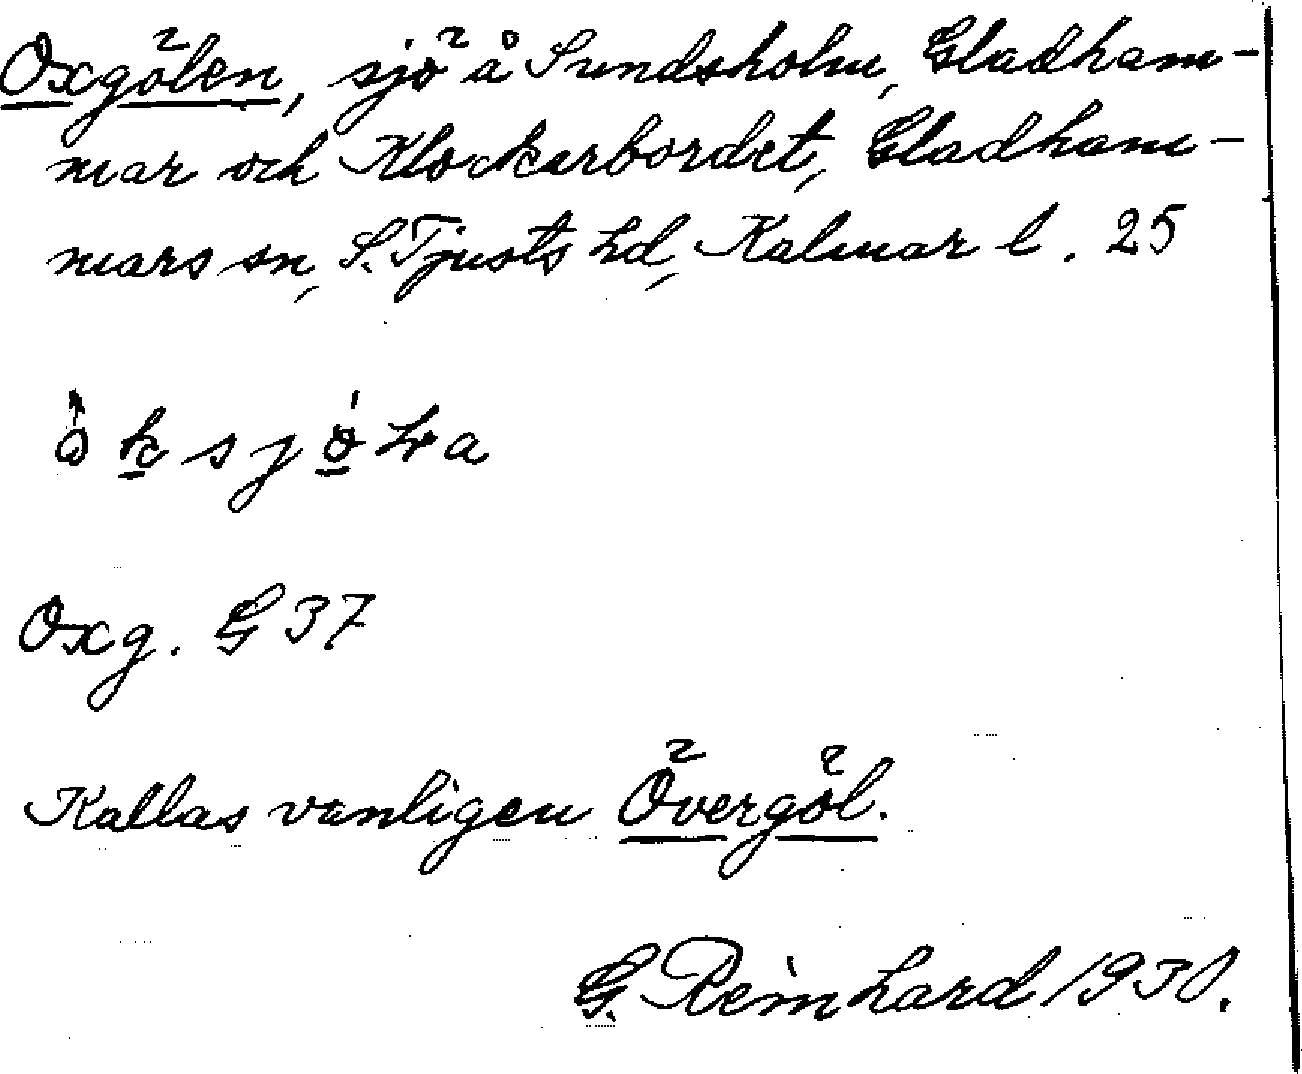 Oxgölen, sjö å Sundsholm, Gladham-
mar och Klockarbordet, Gladham-
mars sn, S. Tjusts hd, Kalmar l. 25
Oxg. G 37
Kallas vanligen Övergöl.
G. Reinhard 1930.